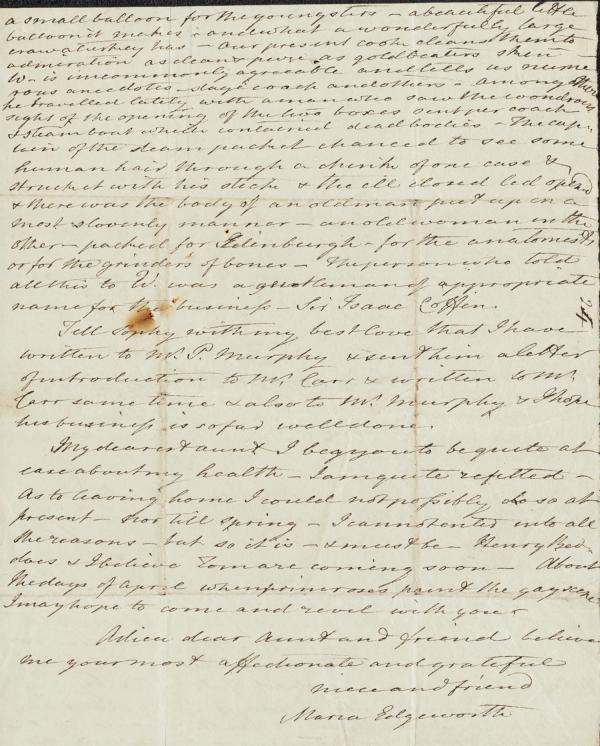 a small balloon for the youngsters – a beautiful little
balloon it makes – and what a wonderfully large
craw a turkey has – Our present cook cleans them to
admiration as clean & pure as goldbeaters skin
W. is uncommonly agreeable and tells us nume
rous anecdotes – stage coach and others – among others
he travelled lately with a man who saw the wondrous
sight of the opening of the two boxes sent per coach
& steam boat which contained dead bodies – The cap-
tain of the steam packet chanced to see some
human hair through a chink of one case &
struck it with his stick & the ill closed lid opened
& there was the body of an old man put up in a
most slovenly manner – an old woman in the
other – packed for Edenburgh – for the anatomists
or for the grinders of bones – The person who told
all this to W. was a gentleman of appropriate
name for the business – Sir Isaac Coffen.
24
Tell Sophy with my best love that I have
written to Mr. P. Murphy & sent him a letter
of introduction to Mr. Carr & written to Mr.
Carr same time & also to Mr. Murphy & I hope
his business is so far well done.
My dearest aunt I beg you to be quite at
ease about my health – I am quite refitted –
As to leaving home I could not possibly do so at
present – nor till spring – I cannot enter into all
the reasons – but so it is – & must be – Henry Bed-
does & I believe Tom are coming soon – About
the days of April when primroses paint the gay scene
I may hope to come and revel with you
Adieu dear Aunt and friend believe
me your most affectionate and grateful
niece and friend
Maria Edgeworth